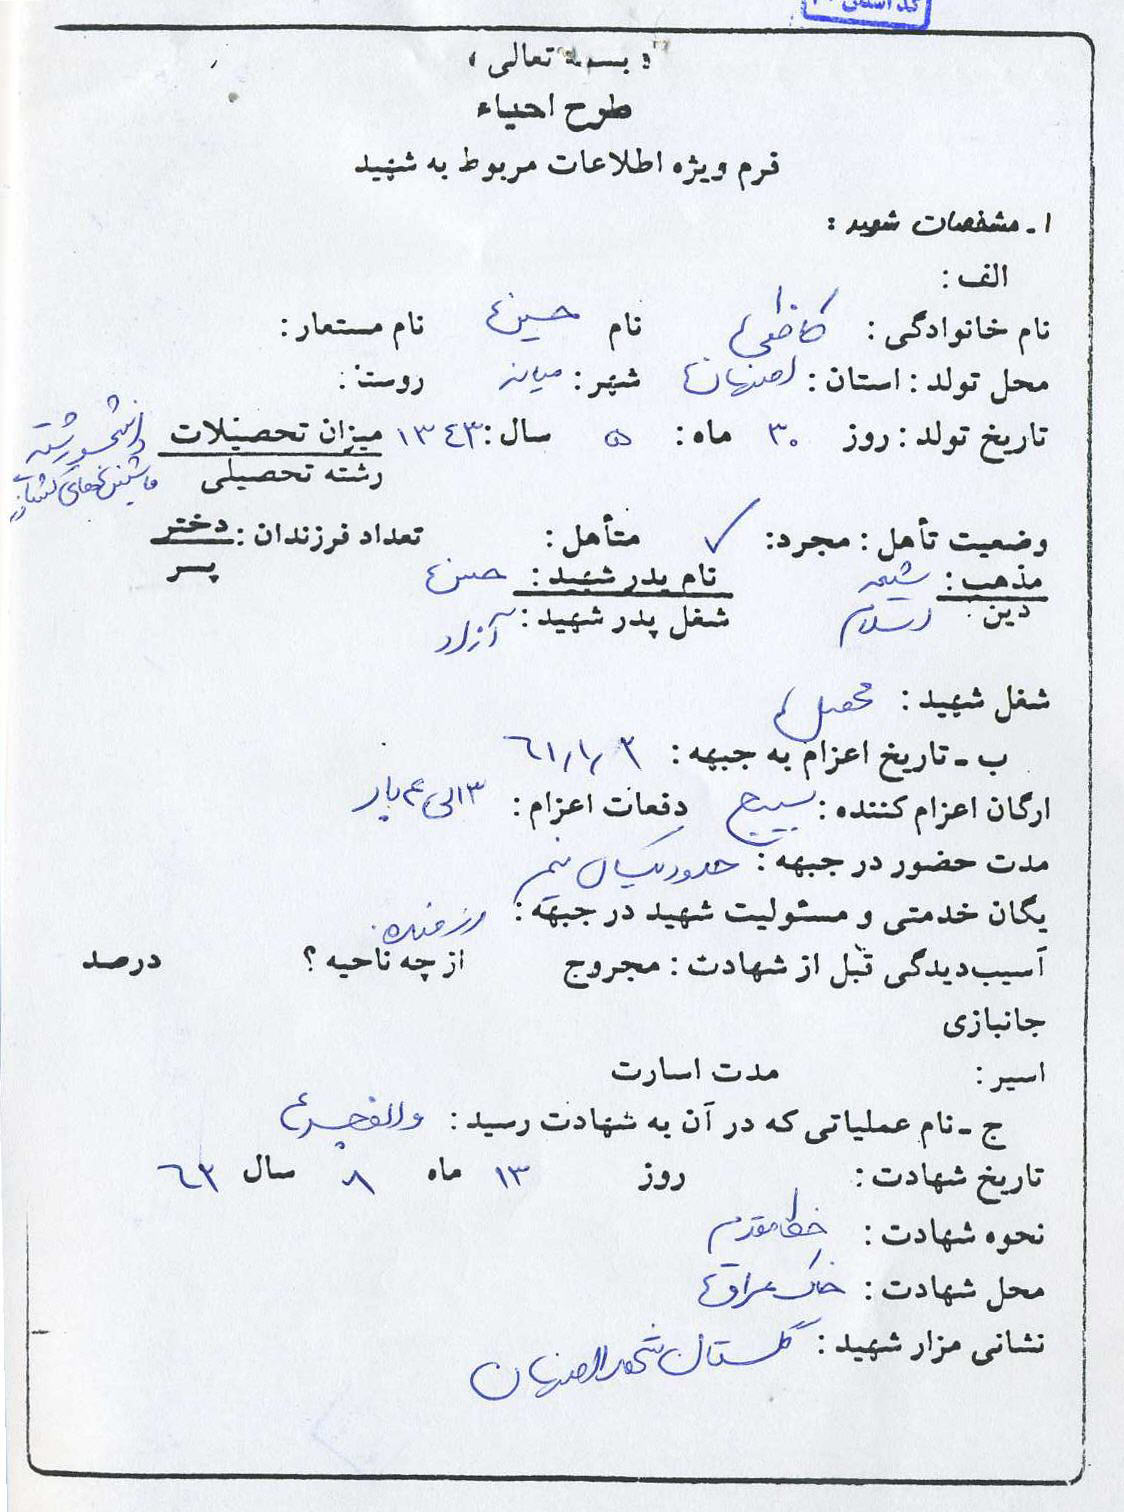 کد استانی
« بسمه تعالی »
طرح احیاء
فرم ویژه اطلاعات مربوط به شهید
۱ـ مشخصات شهید :
الف :
نام خانوادگی : کاظمی نام حسین نام مستعار :
محل تولد : استان : اصفهان شهر : روستا :
تاریخ تولد : روز ۳۰ ماه : ۵ سال : ۱۳۴۳ میزان تحصیلات دانشجو رشته
رشته تحصیلی ماشینهای کشاورزی
وضعیت تأهل : مجرد : ✓ متأهل : تعداد فرزندان : دختر
پسر
مذهب : شیعه نام پدر شهید : حسن
دین : اسلام شغل پدر شهید : آزاد
شغل شهید : محصل
ب ـ تاریخ اعزام به جبهه : ۶۱/۱/۳
ارگان اعزام کننده : بسیج دفعات اعزام : ۳ الی ۴ بار
مدت حضور در جبهه : حدود یکسال نیم
یگان خدمتی و مسئولیت شهید در جبهه : رزمنده
آسیب‌دیدگی قبل از شهادت : مجروح از چه ناحیه ؟ درصد
جانبازی
اسیر : مدت اسارت
ج ـ نام عملیاتی که در آن به شهادت رسید : والفجر ۴
تاریخ شهادت : روز ۱۳ ماه ۸ سال ۶۲
نحوه شهادت : خط مقدم
محل شهادت : خاک عراق
نشانی مزار شهید : گلستان شهدا اصفهان